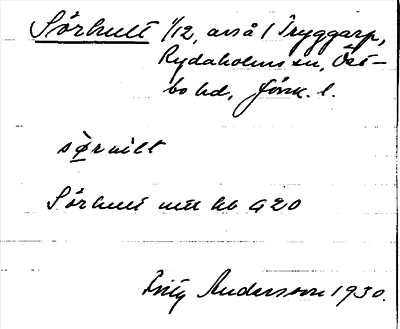 Sörhult 1/12, avs å / Tryggarp,
Rydaholms sn, Öst-
bo hd, Jönk. l.
sörhilt
Sörhult utt bb a20
Fritz Andersson 1930.